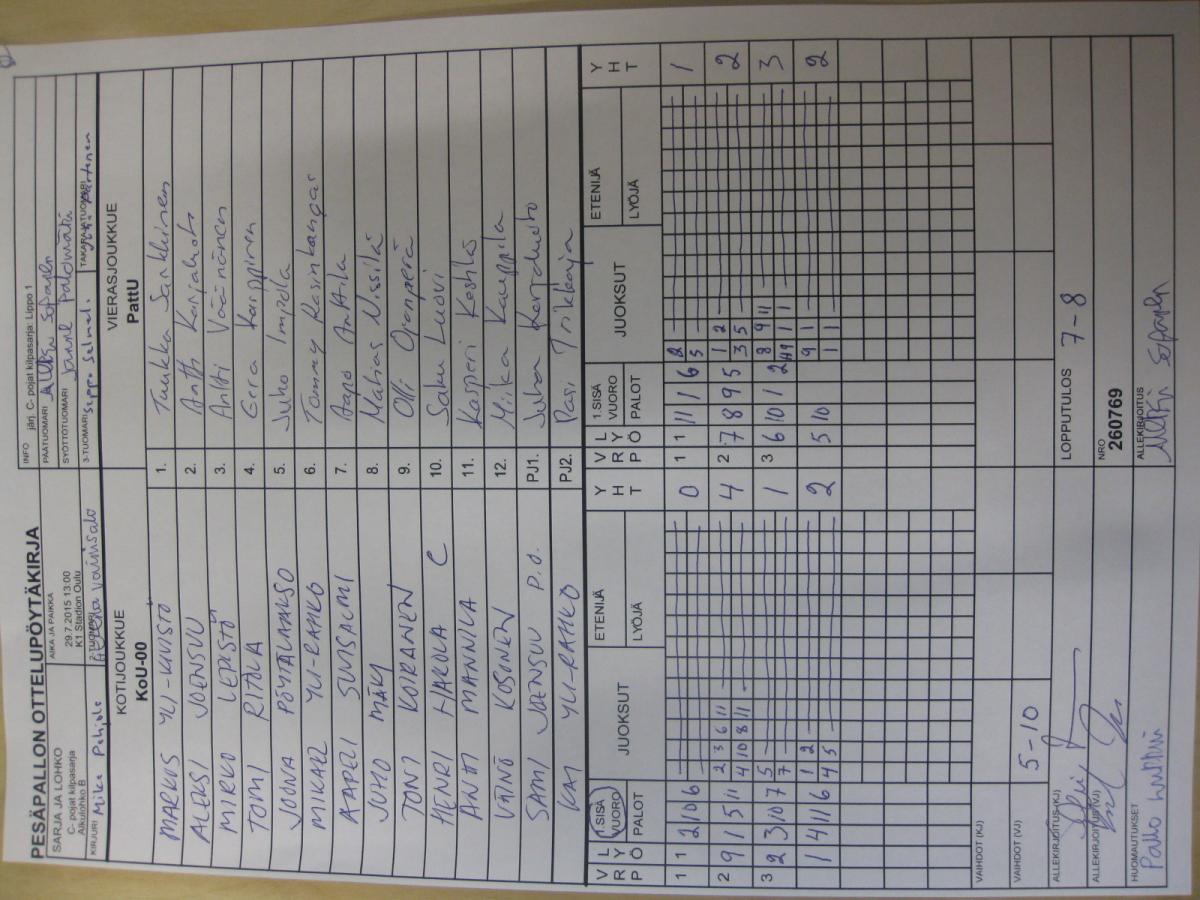 PESÄPALLON OTTELUPÖYTÄKIRJA
SARJA JA LOHKO
C- pojat kilpasarja
Alkulohko B
AIKA JA PAIKKA
29.7.2015 13:00
K1 Stadion Oulu
INFO järj. C- pojat kilpasarja: Lippo 1
PÄÄTUOMARI
SYÖTTÖTUOMARI
KIRJURI
2-TUOMARI
3-TUOMARI Seppo
TAKARAJATUOMARI
KOTIJOUKKUE
KoU-00
VIERASJOUKKUE
PattU
MARKUS YLI-KIVISTÖ 1. Tuukka Sarkkinen
ALEKSI JOENSUU 2. Antti Karjaluoto
MIRKO LEPISTÖ 3. Antti Väänänen
TOMI RITOLA 4. Eerra Karppinen
JOONA PÖYTÄLAAKSO 5. Juho Impola
MIKAEL YLI-RAHKO 6. Tommy Rasinkangas
AAPELI SUNISALMI 7. Aapo Anttila
JUHO MÄKI 8. Matias Nissilä
TONI KOIRANEN 9. Olli Ojanperä
HENRI HAKOLA C 10. Saku Luovi
ANTTI MANNILA 11. Kasperi Koskho
VÄINÖ KOSONEN 12. Miika Kauppila
SAMI JOENSUU P.J. PJ1. Juha
KAI YLI-RAHKO PJ2. Pasi
V R P L Y Ö 1.SISÄ VUORO PALOT JUOKSUT ETENIJÄ LYÖJÄ Y H T V R P L Y Ö 1.SISÄ VUORO PALOT JUOKSUT ETENIJÄ LYÖJÄ Y H T
1 1 2 10 6 0 1 1 11 1 6 2 5 1
2 9 1 5 11 2 3 6 11 4 10 8 11 4 2 7 8 9 5 1 2 3 5 2
3 2 3 10 7 5 7 1 3 6 10 1 2 8 9 11 1 1 3
1 4 11 6 1 2 4 5 2 5 10 9 1 1 1 2
VAIHDOT (KJ)
VAIHDOT (VJ) 5-10
ALLEKIRJOITUS(KJ)
LOPPUTULOS 7-8
ALLEKIRJOITUS(VJ)
NRO
260769
HUOMAUTUKSET
Pallo
ALLEKIRJOITUS